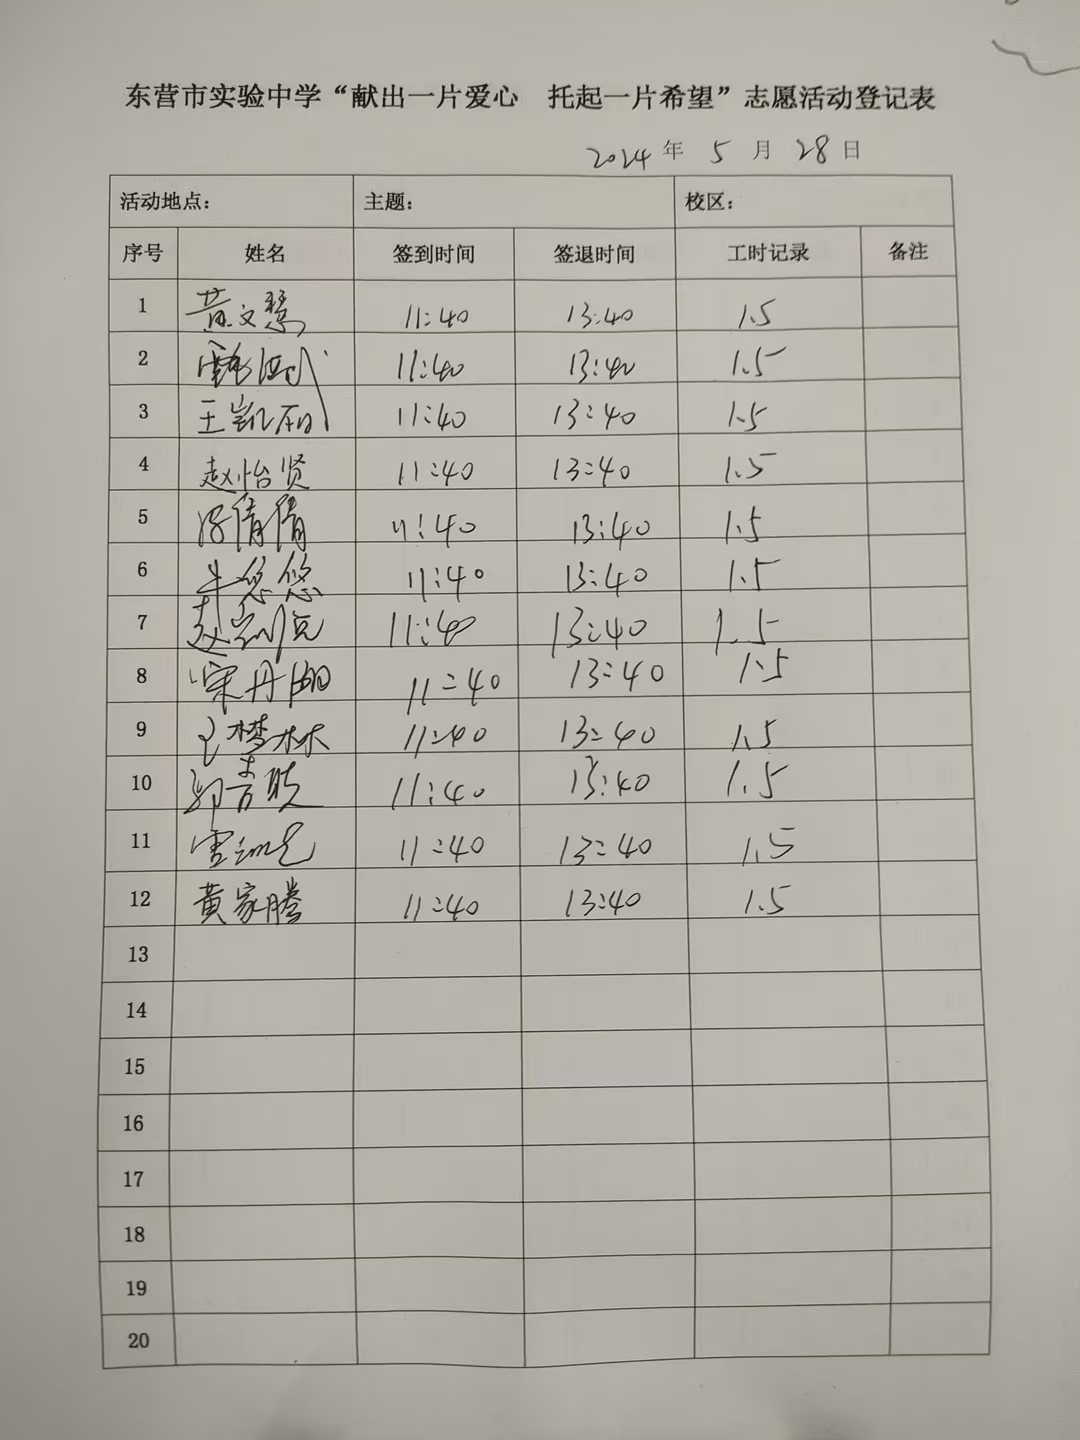 东营市实验中学“献出一片爱心 托起一片希望”志愿活动登记表
2024年 5 月 28 日
活动地点： 主题： 校区：
序号 姓名 签到时间 签退时间 工时记录 备注
1 黄文慧 11:40 13:40 1.5
2 11:40 13:40 1.5
3 王凯 11:40 13:40 1.5
4 赵怡贤 11:40 13:40 1.5
5 倩倩 11:40 13:40 1.5
6 牛悠悠 11:40 13:40 1.5
7 赵 11:40 13:40 1.5
8 宋丹 11:40 13:40 1.5
9 王梦林 11:40 13:40 1.5
10 郭 11:40 13:40 1.5
11 11:40 13:40 1.5
12 黄家腾 11:40 13:40 1.5
13
14
15
16
17
18
19
20